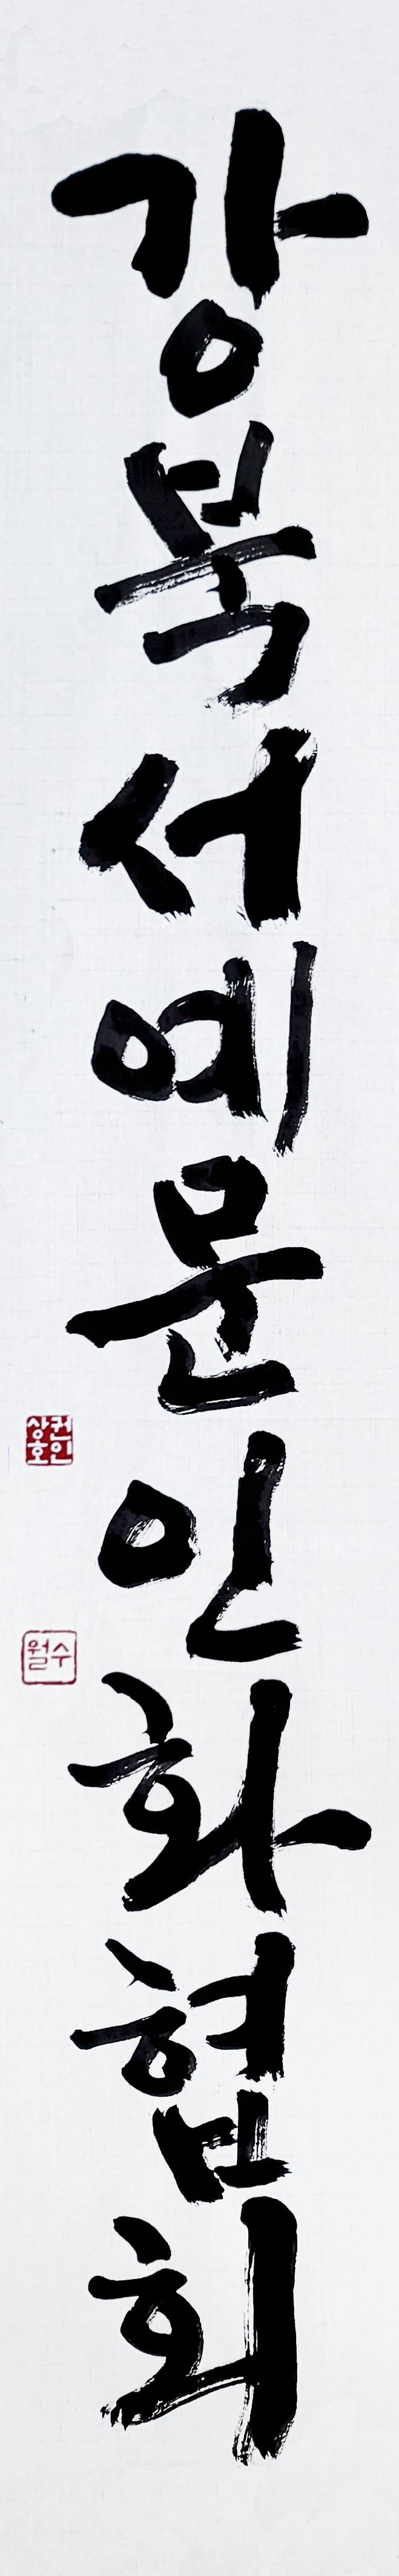 강북서예문인화협회
권상호인
수월